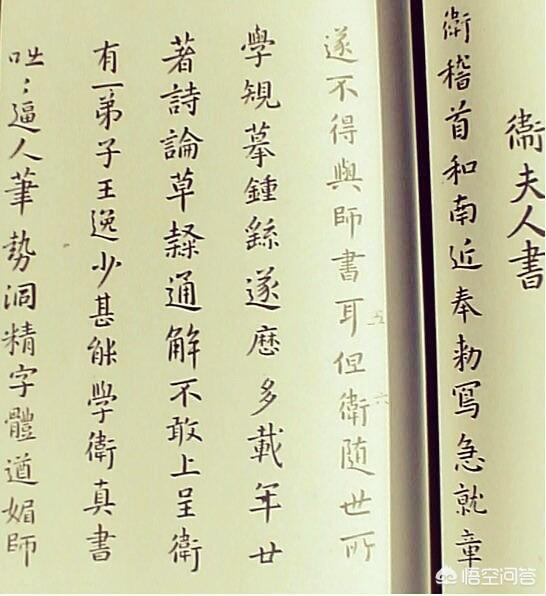 衛夫人書
衛稽首和南近奉勑寫急就章
遂不得與師書耳但衛隨世所
學規摹鍾繇遂歷多載年廿
著詩論草隸通解不敢上呈衛
有一弟子王逸少甚能學衛真書
咄：逼人筆勢洞精字體遒媚師
五
六
悟空问答